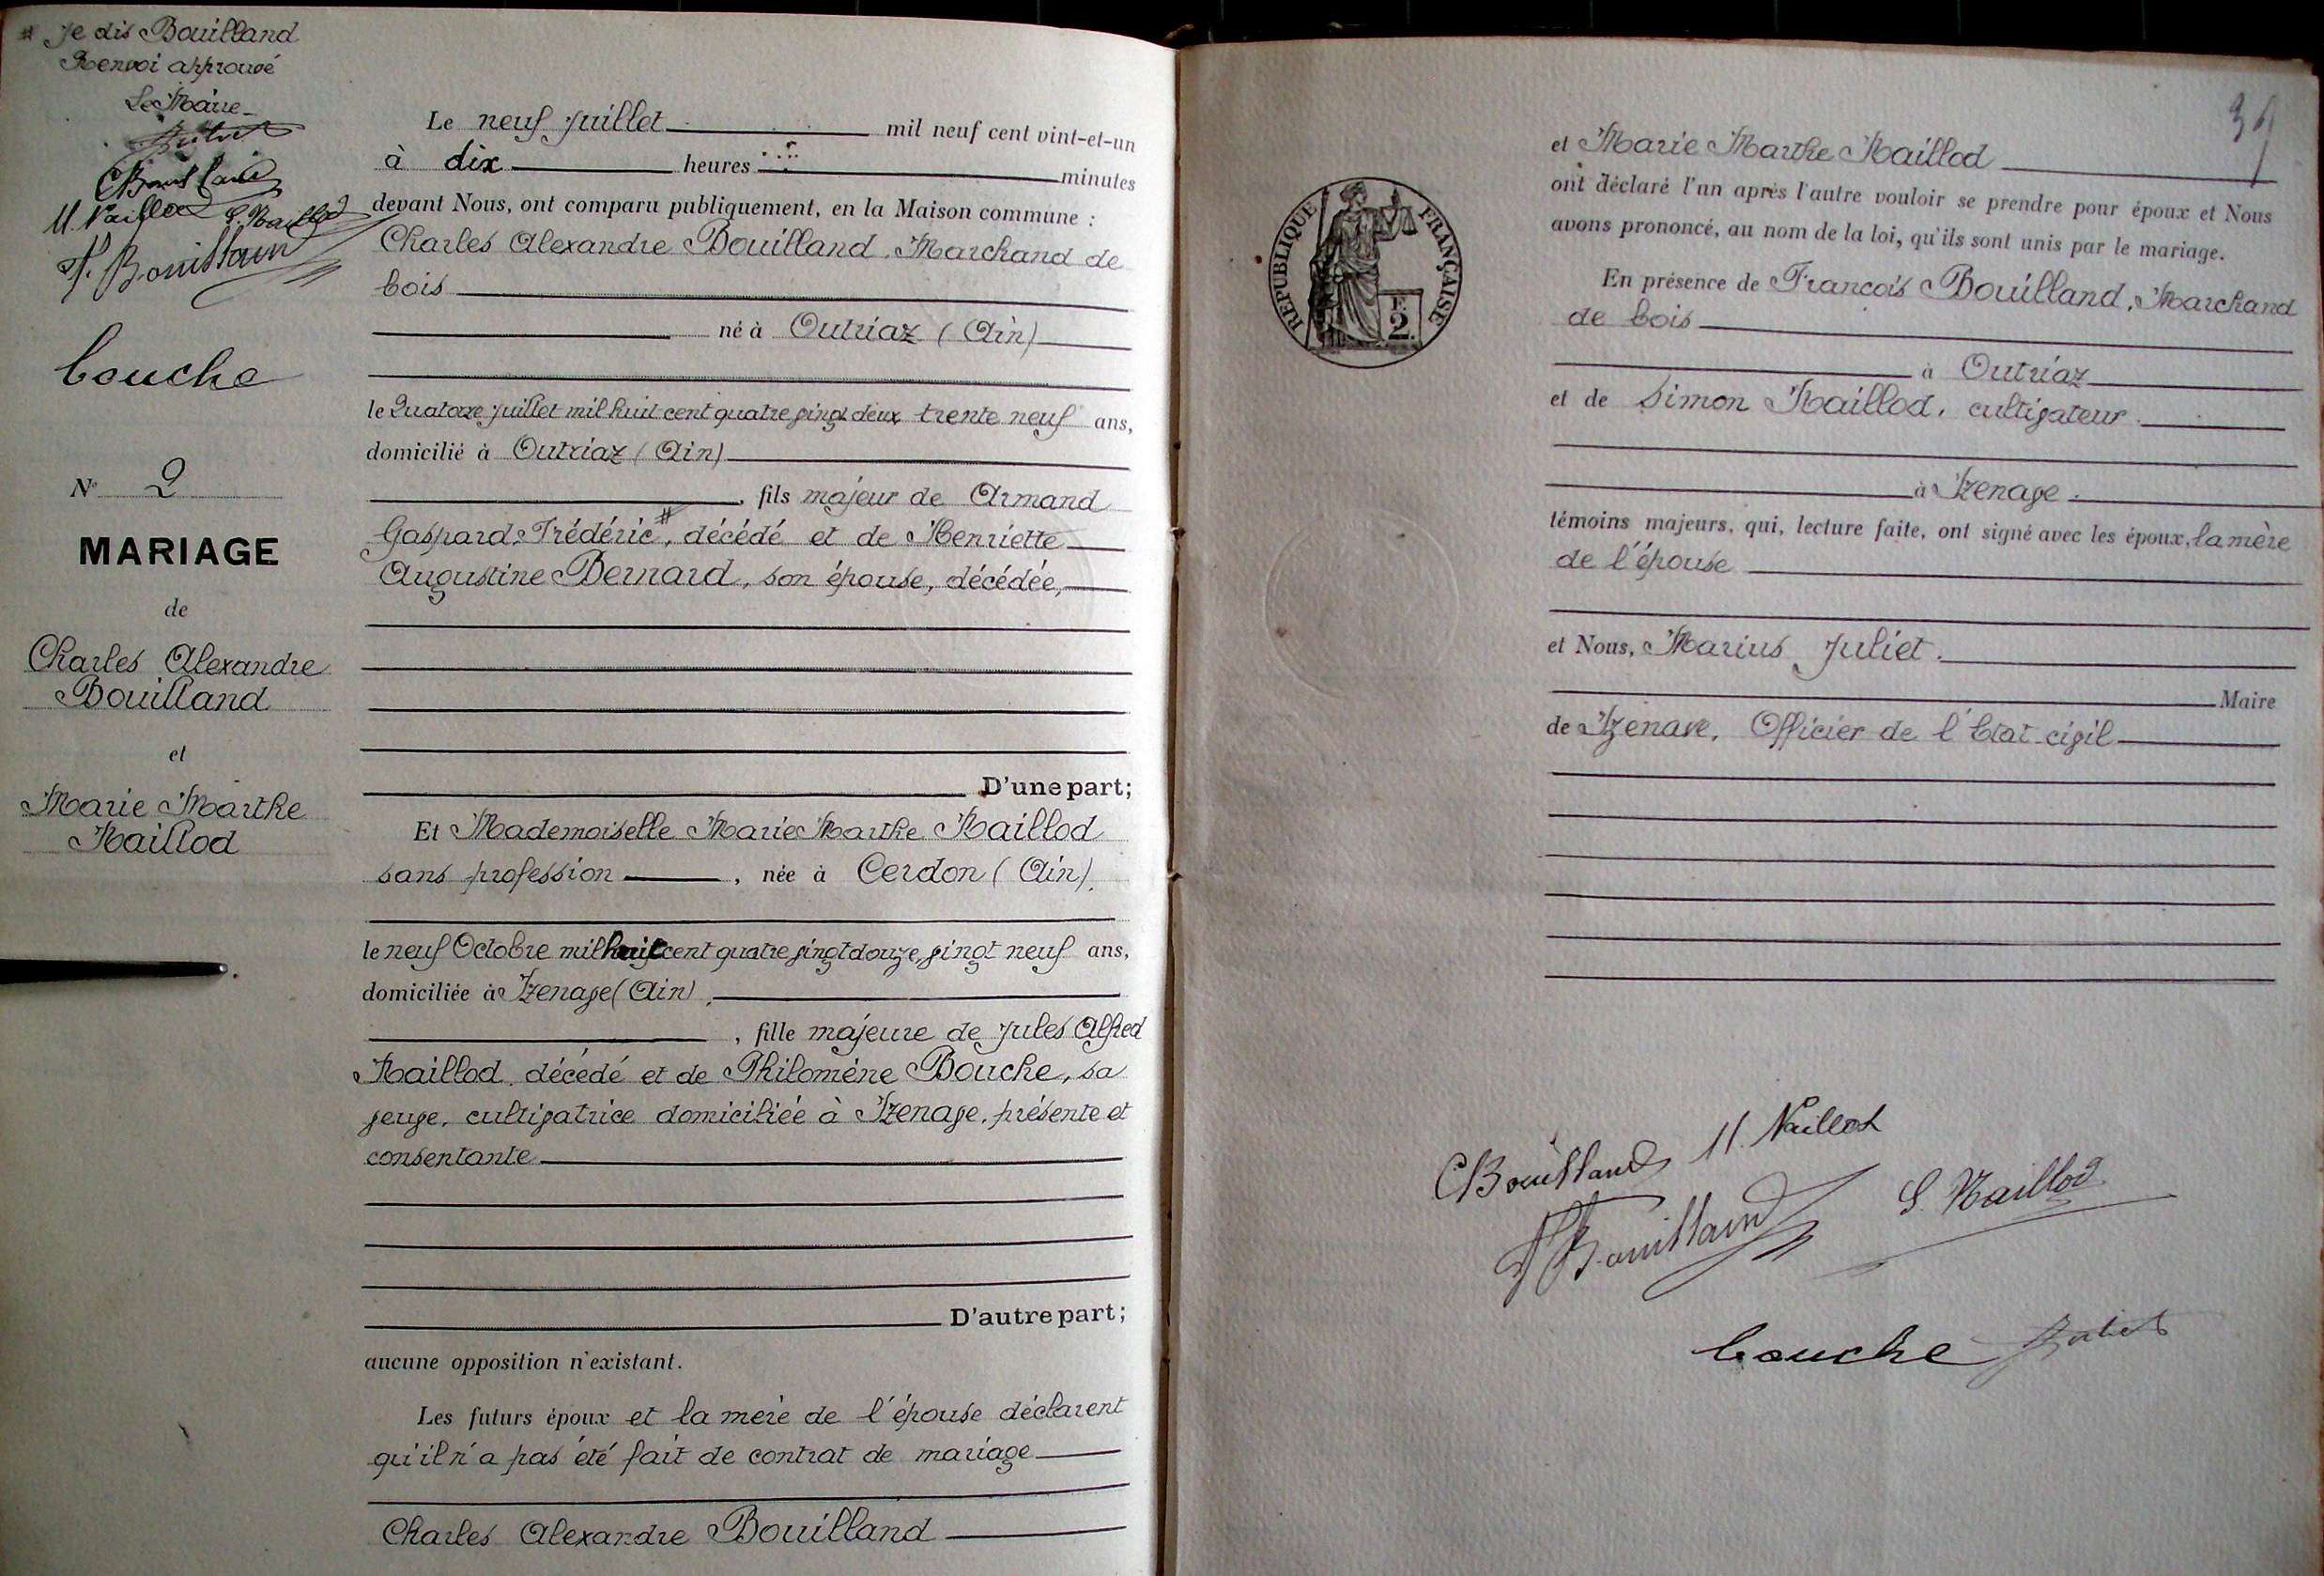 # Je dis Bouilland
Renvoi approuvé
Le Maire
Juliet
CBouilland
M. Naillod S. Naillod
F. Bouilland
bouche
N° 2
MARIAGE
de
Charles Alexandre
Bouilland
et
Marie Marthe
Naillod
Le neuf juillet mil neuf cent vint-et-un
à dix heures minutes
devant Nous, ont comparu publiquement, en la Maison commune :
Charles Alexandre Bouilland, Marchand de
bois
né à Outriaz (Ain)
le Quatorze juillet mil huit cent quatre vingt deux, trente neuf ans,
domicilié à Outriaz (Ain)
, fils majeur de Armand
Gaspard Frédéric #, décédé et de Henriette
Augustine Bernard, son épouse, décédée,
D'une part;
Et Mademoiselle Marie Marthe Naillod
sans profession , née à Cerdon (Ain),
le neuf Octobre mil huit cent quatre vingt douze, vingt neuf ans,
domiciliée à Izenave (Ain),
, fille majeure de Jules Alfred
Naillod, décédé et de Philomène Bouche, sa
veuve, cultivatrice domiciliée à Izenave, présente et
consentante
D'autre part;
aucune opposition n'existant.
Les futurs époux et la mère de l'épouse déclarent
qu'il n'a pas été fait de contrat de mariage
Charles Alexandre Bouilland
37
et Marie Marthe Naillod
ont déclaré l'un après l'autre vouloir se prendre pour époux et Nous
avons prononcé, au nom de la loi, qu'ils sont unis par le mariage.
RÉPUBLIQUE FRANÇAISE
F. 2
En présence de Francois Bouilland, Marchand
de bois
à Outriaz
et de Simon Naillod, cultivateur
à Izenave.
témoins majeurs, qui, lecture faite, ont signé avec les époux, la mère
de l'épouse
et Nous, Marius Juliet.
Maire
de Izenave, Officier de l'Etat-civil
CBouilland M. Naillod
FBouilland S. Naillod
bouche Juliet